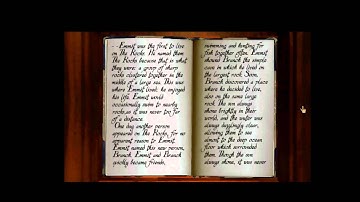 Emmit was the first to live
on The Rocks. He named them
The Rocks because that is what
they were: a group of sharp
rocks clustered together in the
middle of a large sea. This was
where Emmit lived; he enjoyed
his life. Emmit would
occasionally swim to nearby
rocks, as it was never too far
of a distance.
One day another person
appeared on The Rocks, for no
apparent reason to Emmit.
Emmit named this new person,
Branch. Emmit and Branch
quickly became friends,
swimming and hunting for
fish together often. Emmit
showed Branch the simple
cave in which he lived on
the largest rock. Soon,
Branch discovered a place
where he decided to live,
also on the same large
rock. The sun always
shone brightly in their
world, and the water was
always dazzlingly clear,
allowing them to see
almost to the deep ocean
floor which surrounded
them. Though the sun
always shone, it was never